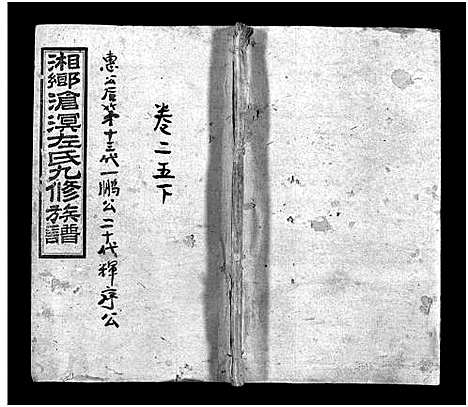 卷二五下
惠公后第十三代一鹏公二十代輝序公
湘鄉滄溟左氏九修族譜